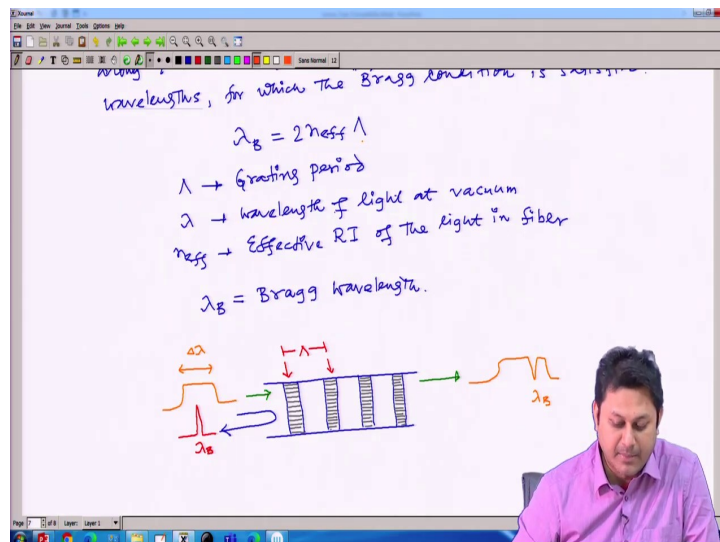 Xournal
File Edit View Journal Tools Options Help
Sans Normal 12
wavelengths, for which the "Bragg condition is
λB = 2neff Λ
Λ → Grating period
λ → wavelength of light at vacuum
neff → Effective RI of the light in fiber
λB = Bragg wavelength.
Δλ
Λ
λB
λB
Page 7 of 8 Layer: Layer 1